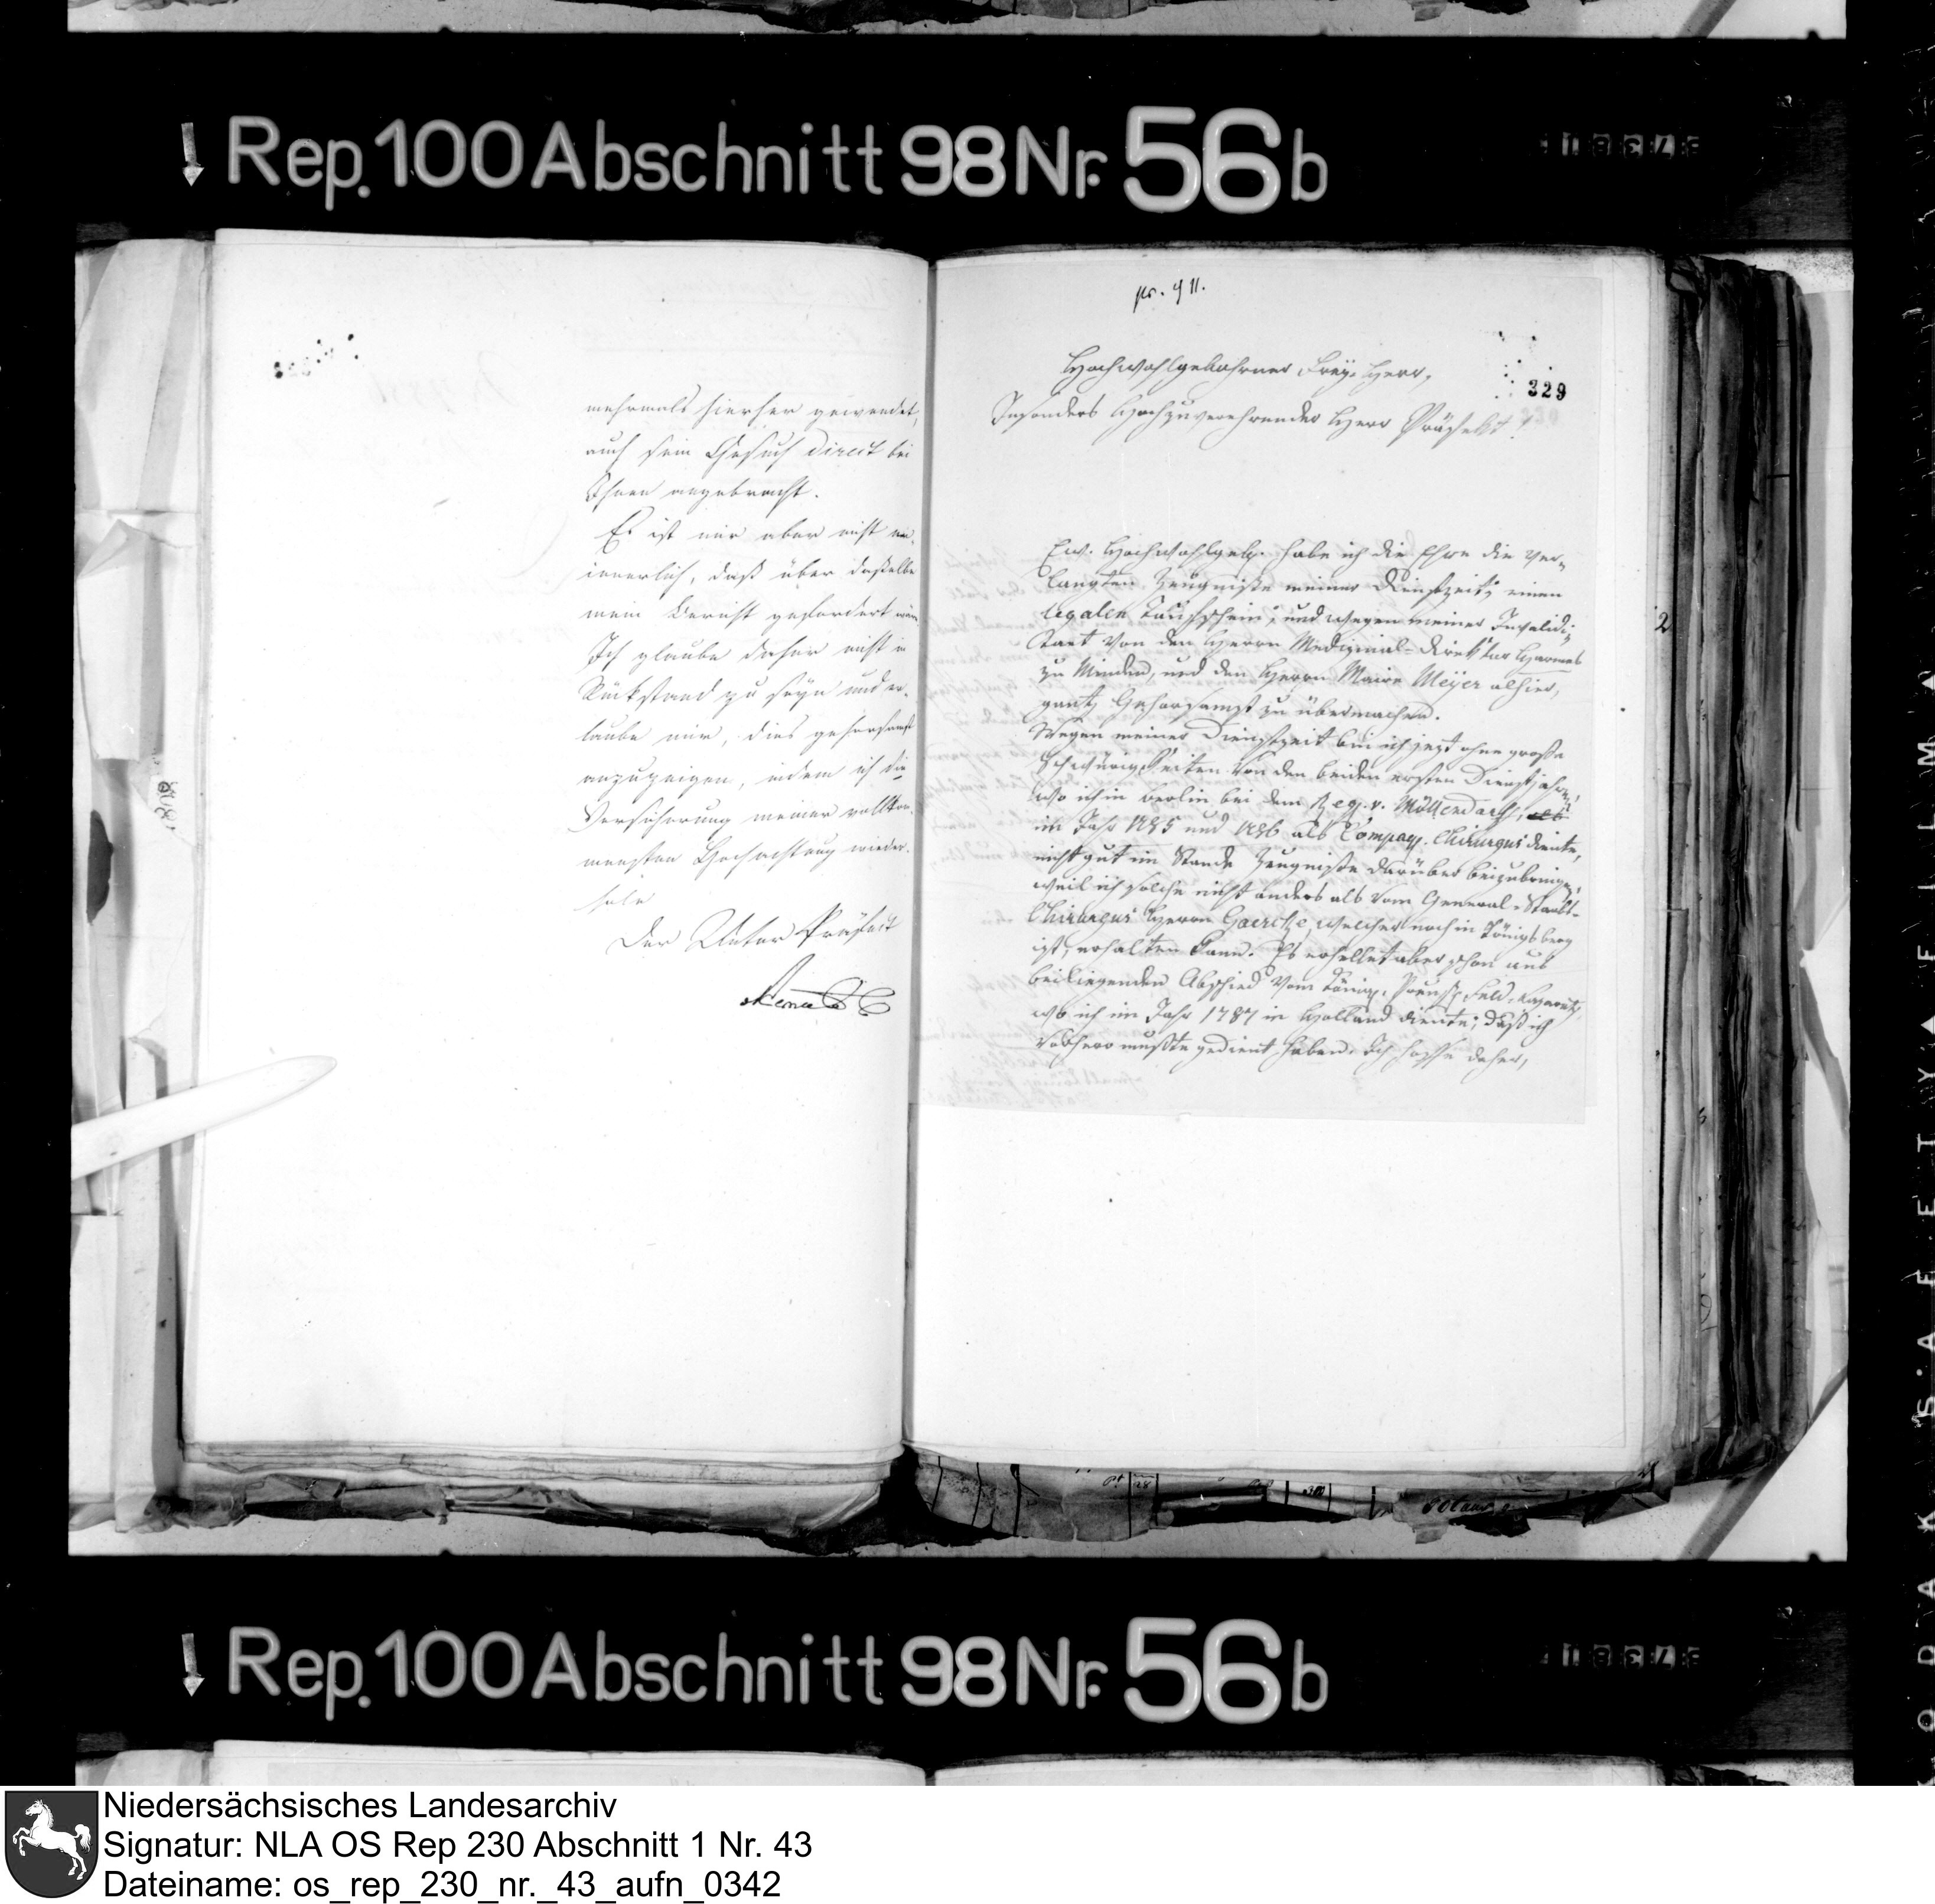 Rep. 100 Abschnitt 98 Nr. 56b
mehrmals hierher gewendet,
auch sein Gesuch direct bei
Ihnen angebracht.
Es ist mir aber nicht er-
innerlich, daß über dasselbe
mein Bericht gefordert wäre.
Ich glaube daher nicht in
Rückstand zu seyn und er-
laube mir, dies gehorsamst
anzuzeigen, indem ich die
Versicherung meiner vollkom-
mensten Hochachtung wieder-
hole
Der Unter Präfect
pr. 9/11.
329
Hochwohlgebohrner Frey-Herr,
Insonders Hochzuverehrender Herr Präfekt!
Ew. Hochwohlgeb. habe ich die Ehre die ver-
langten Zeugniße meiner Dienstzeit, einen
legalen Taufschein, und wegen meiner Invalidi-
taet von den Herrn Medizinal-Direktor Harmes
zu Minden, und den Herrn Maire Meyer alhier,
gantz Gehorsamst zu übermachen.
Wegen meiner Dienstzeit bin ich jezt ohne große
Schwürigkeiten von den beiden ersten Dienstjahren,
wo ich in Berlin bei dem Reg. v. Möllendorff, als
im Jahr 1785 und 1786 als Compag. Chirurgus diente,
nicht gut im Stande Zeugniße darüber beizubringen,
weil ich solche nicht anders als vom General-Staabs-
Chirurgus Herrn Goercke, welcher noch in Königsberg
ist, erhalten kann. Es erhellet aber schon aus
beiliegenden Abschied vom Königl. Preuß. Feld-Lazareth,
wo ich im Jahr 1787 in Holland diente, daß ich
vorhero mußte gedient haben. Ich hoffe daher,
2
Rep. 100 Abschnitt 98 Nr. 56b
Niedersächsisches Landesarchiv
Signatur: NLA OS Rep 230 Abschnitt 1 Nr. 43
Dateiname: os_rep_230_nr._43_aufn_0342